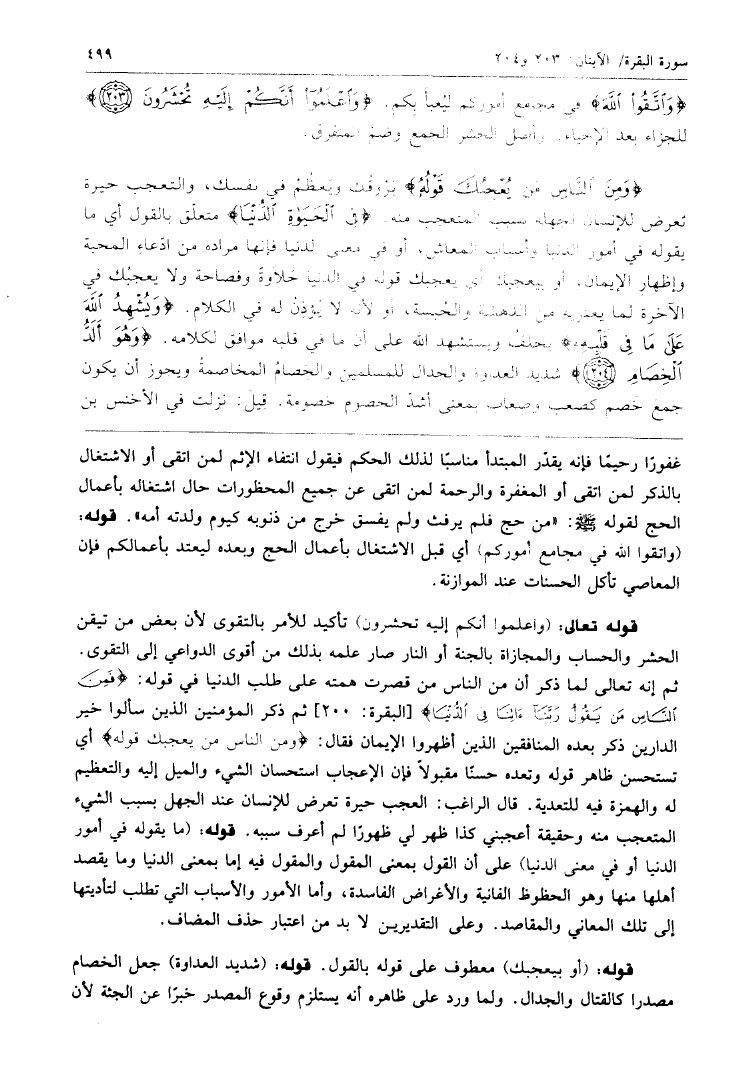 سورة البقرة/ الآيتان: ٢٠٣ و٢٠٤
٤٩٩
﴿وَٱتَّقُوا۟ ٱللَّهَ﴾ في مجامع أموركم ليعبأ بكم. ﴿وَٱعْلَمُوٓا۟ أَنَّكُمْ إِلَيْهِ تُحْشَرُونَ (٢٠٣)﴾
للجزاء بعد الإحياء. وأصل الحشر الجمع وضم المتفرق.
﴿وَمِنَ ٱلنَّاسِ مَن يُعْجِبُكَ قَوْلُهُۥ﴾ يَرُوقُك ويَعظُمُ في نفسك، والتعجب حيرة
تَعرض للإنسان لجهله بسبب المتعجب منه. ﴿فِى ٱلْحَيَوٰةِ ٱلدُّنْيَا﴾ متعلق بالقول أي ما
يقوله في أمور الدنيا وأسباب المعاش، أو في معنى الدنيا فإنها مراده من ادّعاء المحبة
وإظهار الإيمان، أو بيعجبك أي يعجبك قوله في الدنيا حَلاوةً وفصاحة ولا يعجبُك في
الآخرة لما يعتريه من الدهشة والحُبسة، أو لأنه لا يُؤذَن له في الكلام. ﴿وَيُشْهِدُ ٱللَّهَ
عَلَىٰ مَا فِى قَلْبِهِۦ﴾ يحلفُ ويستشهد الله على أن ما في قلبه موافق لكلامه. ﴿وَهُوَ أَلَدُّ
ٱلْخِصَامِ (٢٠٤)﴾ شديد العداوة والجدال للمسلمين والخصامُ المخاصمةُ ويجوز أن يكون
جمع خصم كصعب وصعاب بمعنى أشدّ الخصوم خصومة. قيل: نزلت في الأخنس بن
غفورًا رحيمًا فإنه يقدّر المبتدأ مناسبًا لذلك الحكم فيقول انتفاء الإثم لمن اتقى أو الاشتغال
بالذكر لمن اتقى أو المغفرة والرحمة لمن اتقى عن جميع المحظورات حال اشتغاله بأعمال
الحج لقوله ﷺ: «من حج فلم يرفث ولم يفسق خرج من ذنوبه كيوم ولدته أمه». قوله:
(واتقوا الله في مجامع أموركم) أي قبل الاشتغال بأعمال الحج وبعده ليعتد بأعمالكم فإن
المعاصي تأكل الحسنات عند الموازنة.
قوله تعالى: (واعلموا أنكم إليه تحشرون) تأكيد للأمر بالتقوى لأن بعض من تيقن
الحشر والحساب والمجازاة بالجنة أو النار صار علمه بذلك من أقوى الدواعي إلى التقوى.
ثم إنه تعالى لما ذكر أن من الناس من قصرت همته على طلب الدنيا في قوله: ﴿فَمِنَ
ٱلنَّاسِ مَن يَقُولُ رَبَّنَآ ءَاتِنَا فِى ٱلدُّنْيَا﴾ [البقرة: ٢٠٠] ثم ذكر المؤمنين الذين سألوا خير
الدارين ذكر بعده المنافقين الذين أظهروا الإيمان فقال: ﴿ومن الناس من يعجبك قوله﴾ أي
تستحسن ظاهر قوله وتعده حسنًا مقبولاً فإن الإعجاب استحسان الشيء والميل إليه والتعظيم
له والهمزة فيه للتعدية. قال الراغب: العجب حيرة تعرض للإنسان عند الجهل بسبب الشيء
المتعجب منه وحقيقة أعجبني كذا ظهر لي ظهورًا لم أعرف سببه. قوله: (ما يقوله في أمور
الدنيا أو في معنى الدنيا) على أن القول بمعنى المقول والمقول فيه إما بمعنى الدنيا وما يقصد
أهلها منها وهو الحظوظ الفانية والأغراض الفاسدة، وأما الأمور والأسباب التي تطلب لتأديتها
إلى تلك المعاني والمقاصد. وعلى التقديرين لا بد من اعتبار حذف المضاف.
قوله: (أو بيعجبك) معطوف على قوله بالقول. قوله: (شديد العداوة) جعل الخصام
مصدرا كالقتال والجدال. ولما ورد على ظاهره أنه يستلزم وقوع المصدر خبرًا عن الجثة لأن